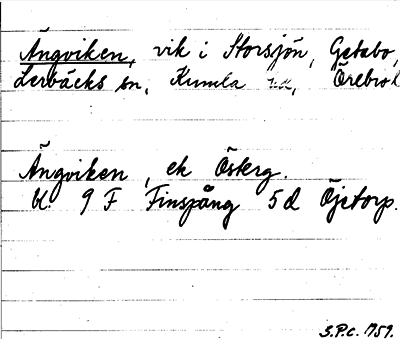 Ängviken, vik i Storsjön, Getabo,
Lerbäcks sn, Kumla hd, Örebro l
Ängviken, ek Österg.
K 9 F Finspång 5 d Öjetorp.
S.P.C. 1959.